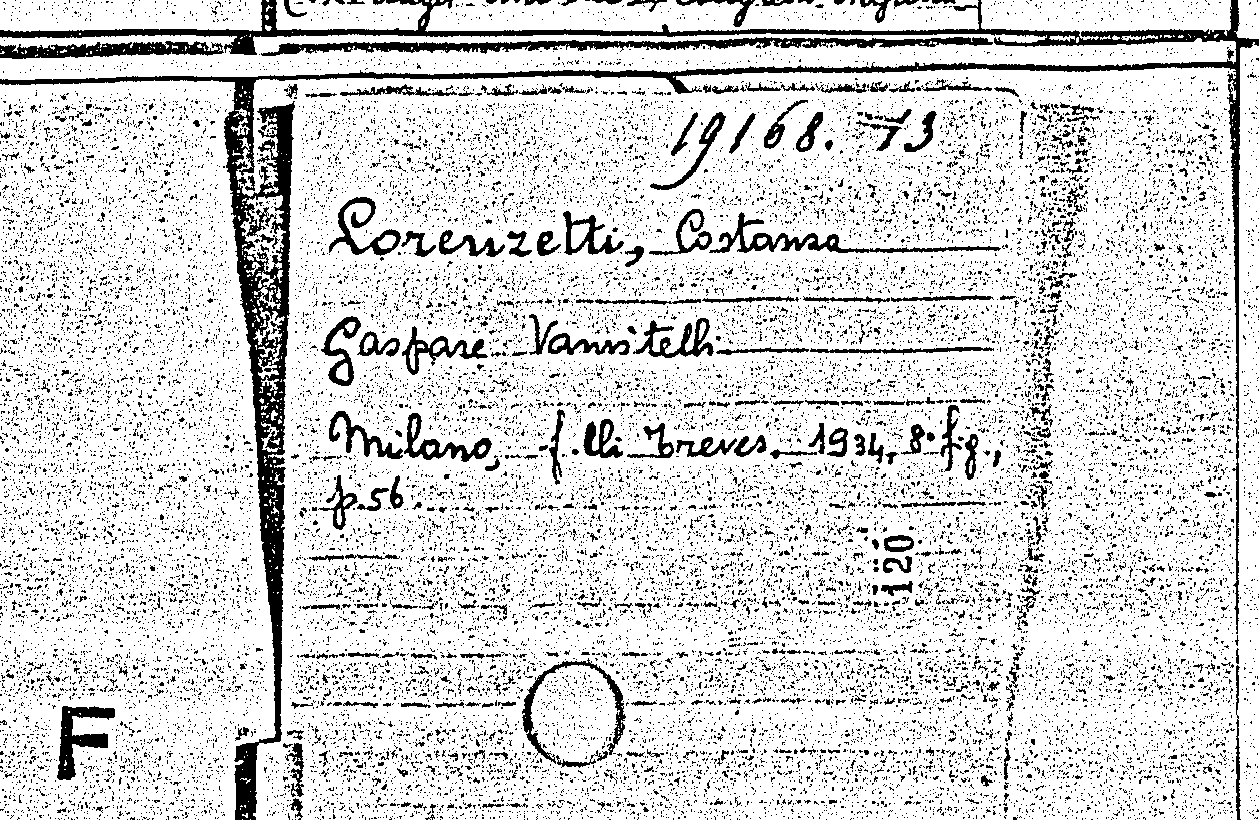 19168. 73
Lorenzetti, Costanza
Gaspare Vanvitelli
Milano, f.lli Treves. 1934, 8° fig.,
p. 56.
120
F